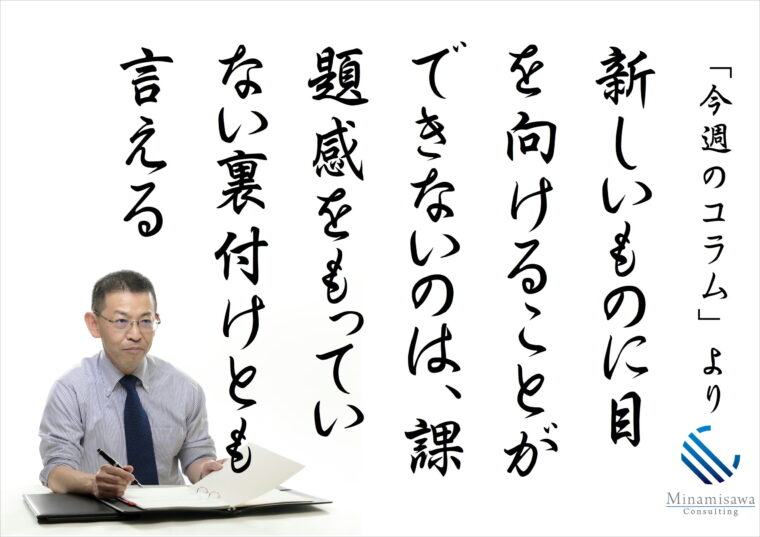 「今週のコラム」より
新しいものに目
を向けることが
できないのは、課
題感をもってい
ない裏付けとも
言える
Minamisawa
Consulting